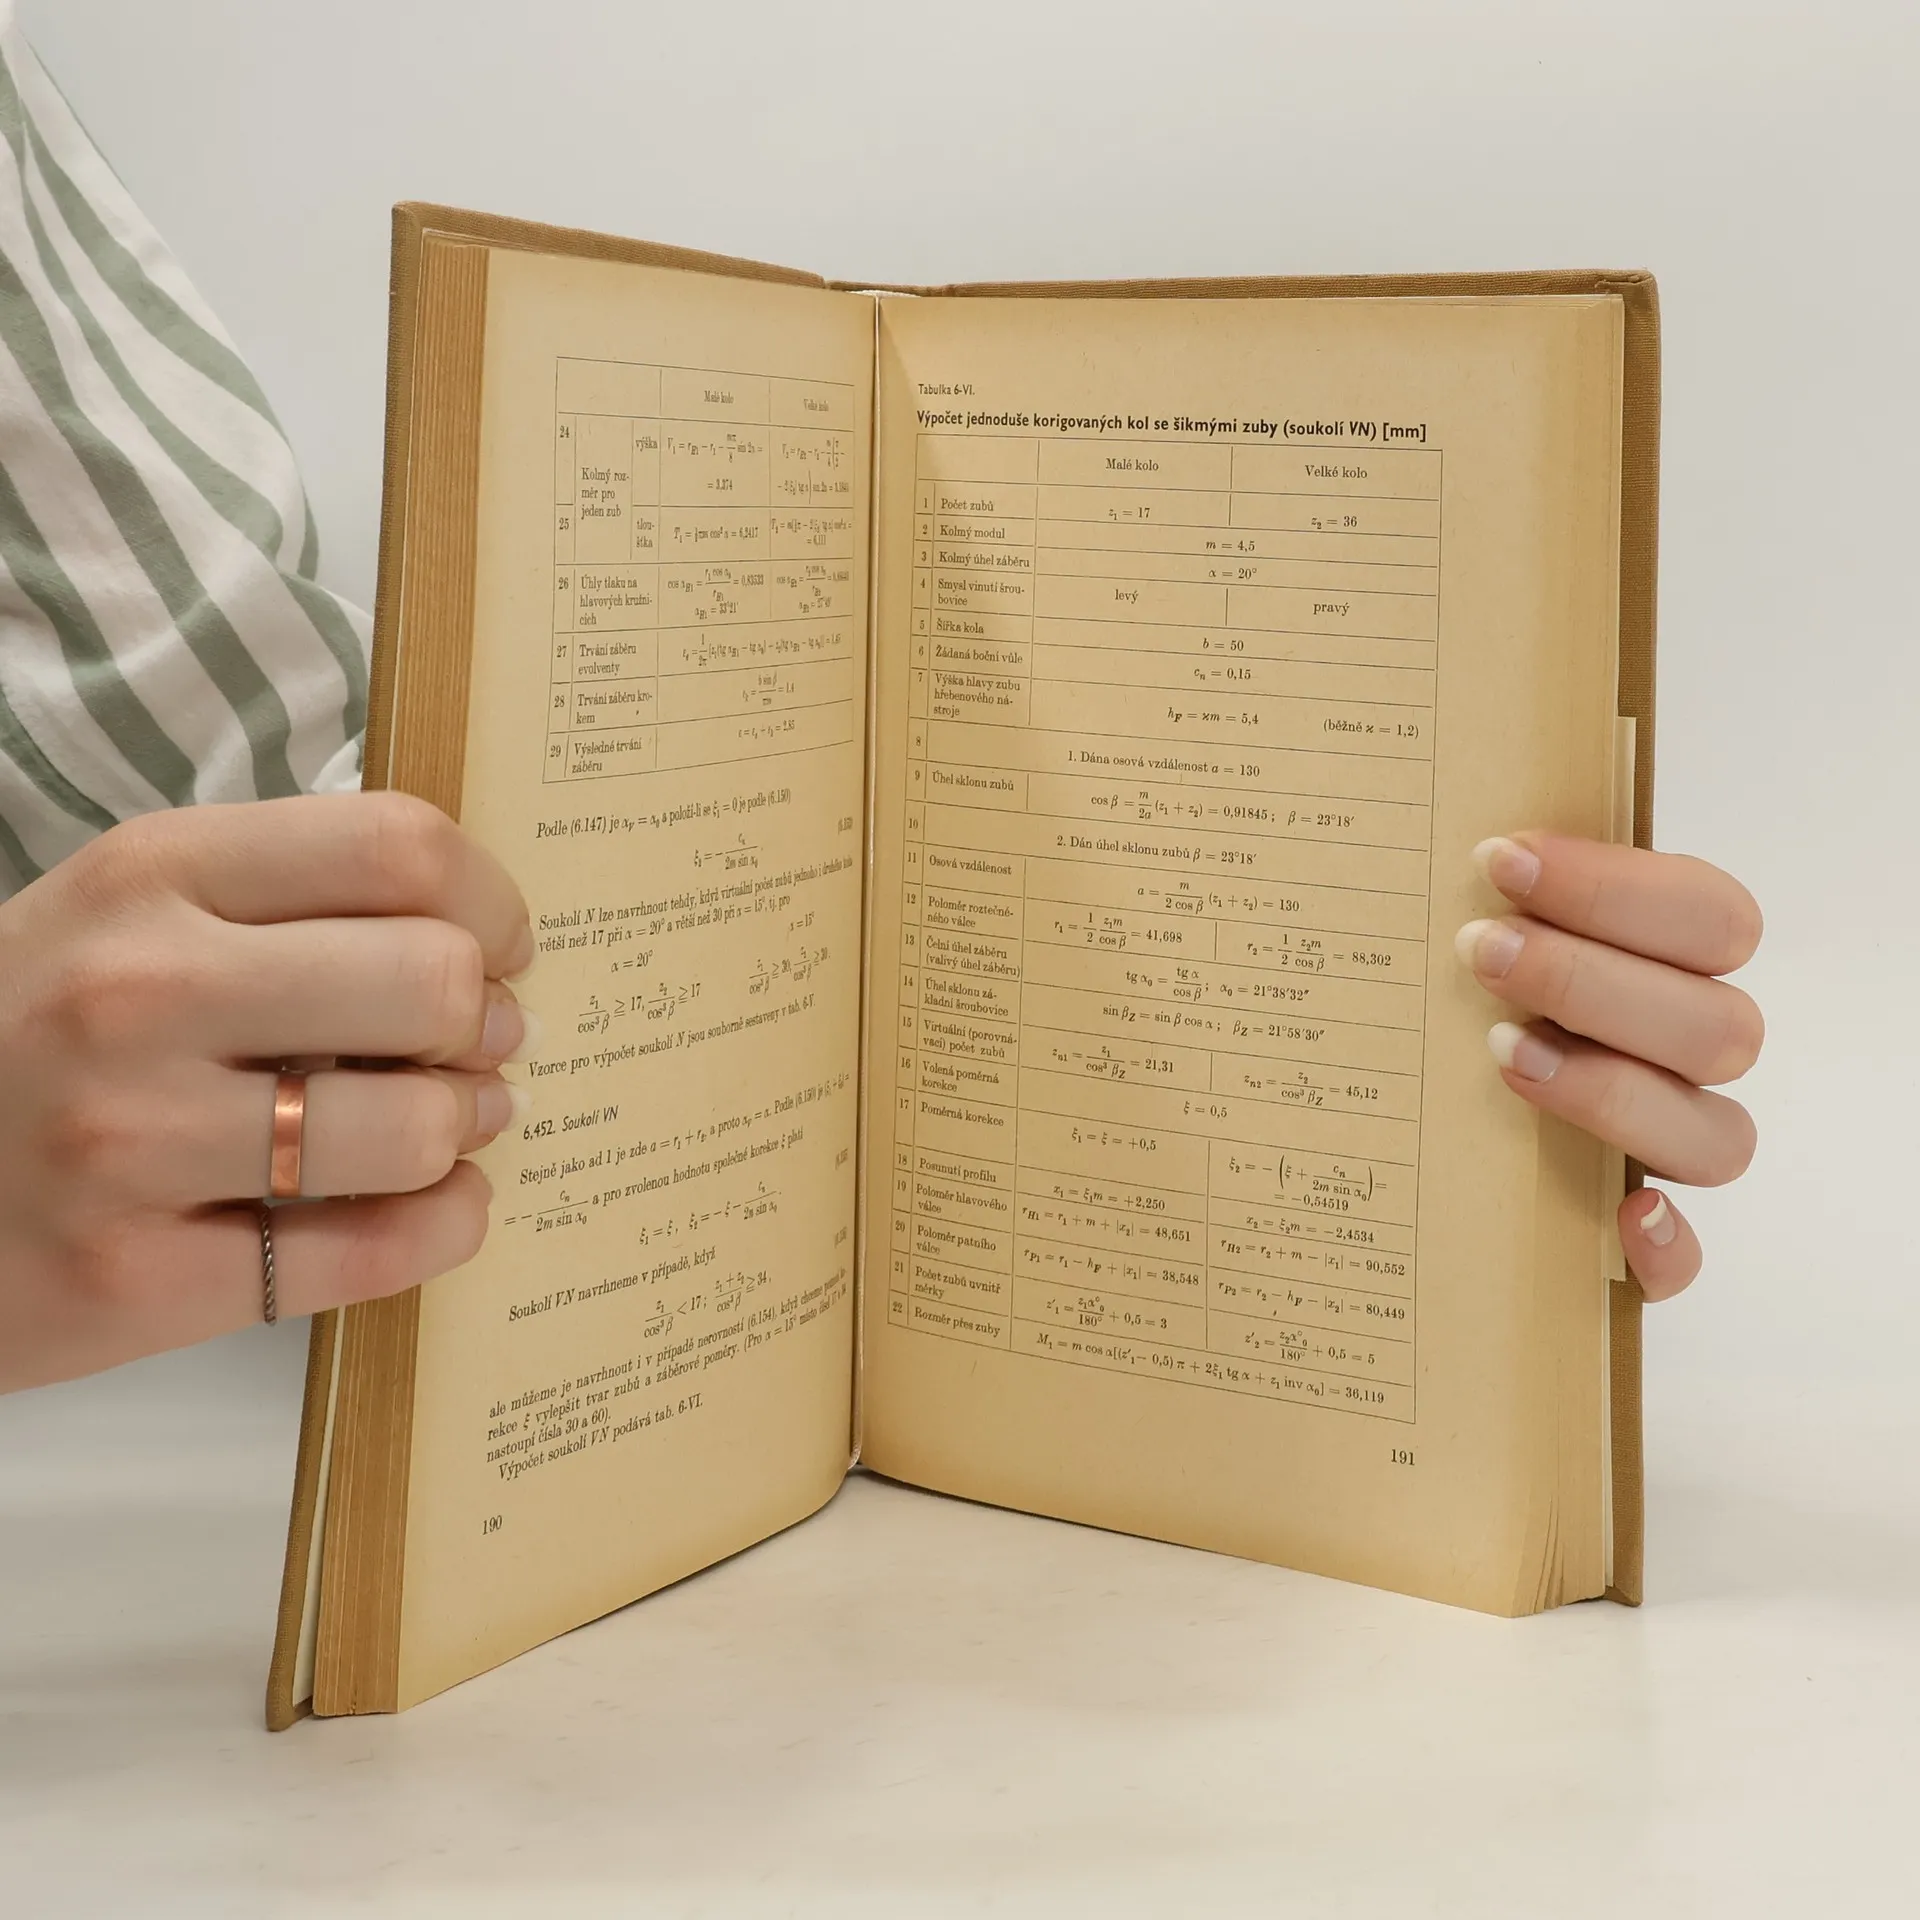 Malé kolo Velké kolo
24 Kolmý roz-
měr pro
jeden zub výška V₁ = r_H1 − r₁ − mπ/8 sin 2α =
= 3,374
25 tlou-
šťka
26 Úhly tlaku na
hlavových kružni-
cích cos α_H1 = r₁ cos α₀/r_H1 = 0,83533
α_H1 = 33°21′
27 Trvání záběru
evolventy
28 Trvání záběru kro-
kem = b sin β/πm = 1,4
29 Výsledné trvání
záběru = 2,85
Podle (6.147) je α_V = α₀ a položí-li se ξ₁ = 0 je podle (6.150)
ξ₂ = − cₙ/2m sin α₀
Soukolí N lze navrhnout tehdy, když virtuální počet zubů jednoho i druhého kola
větší než 17 při α = 20° a větší než 30 při α = 15°, tj. pro
α = 20° α = 15°
z₁/cos³ β ≧ 17, z₂/cos³ β ≧ 17 z₁/cos³ β ≧ 30, z₂/cos³ β ≧ 30.
Vzorce pro výpočet soukolí N jsou souborně sestaveny v tab. 6-V.
6,452. Soukolí VN
Stejně jako ad 1 je zde a = r₁ + r₂, a proto α_V = α. Podle (6.150) je (ξ₁ + ξ₂) =
= − cₙ/2m sin α₀ a pro zvolenou hodnotu společné korekce ξ platí
ξ₁ = ξ, ξ₂ = − ξ − cₙ/2m sin α₀.
Soukolí VN navrhneme v případě, když
z₁/cos³ β < 17; z₁ + z₂/cos³ β ≧ 34,
ale můžeme je navrhnout i v případě nerovností (6.154), když chceme pomocí ko-
rekce ξ vylepšit tvar zubů a záběrové poměry. (Pro α = 15° místo čísel 17 a 34
nastoupí čísla 30 a 60).
Výpočet soukolí VN podává tab. 6-VI.
190
Tabulka 6-VI.
Výpočet jednoduše korigovaných kol se šikmými zuby (soukolí VN) [mm]
Malé kolo Velké kolo
1 Počet zubů z₁ = 17 z₂ = 36
2 Kolmý modul m = 4,5
3 Kolmý úhel záběru α = 20°
4 Smysl vinutí šrou-
bovice levý pravý
5 Šířka kola b = 50
6 Žádaná boční vůle cₙ = 0,15
7 Výška hlavy zubu
hřebenového ná-
stroje h_F = ϰm = 5,4 (běžně ϰ = 1,2)
8 1. Dána osová vzdálenost a = 130
9 Úhel sklonu zubů cos β = m/2a (z₁ + z₂) = 0,91845 ; β = 23°18′
10 2. Dán úhel sklonu zubů β = 23°18′
11 Osová vzdálenost a = m/2 cos β (z₁ + z₂) = 130
12 Poloměr roztečné-
ného válce r₁ = 1/2 z₁m/cos β = 41,698 r₂ = 1/2 z₂m/cos β = 88,302
13 Čelní úhel záběru
(valivý úhel záběru) tg α₀ = tg α/cos β ; α₀ = 21°38′32″
14 Úhel sklonu zá-
kladní šroubovice sin β_Z = sin β cos α ; β_Z = 21°58′30″
15 Virtuální (porovná-
vací) počet zubů zₙ₁ = z₁/cos³ β_Z = 21,31 zₙ₂ = z₂/cos³ β_Z = 45,12
16 Volená poměrná
korekce ξ = 0,5
17 Poměrná korekce ξ₁ = ξ = +0,5 ξ₂ = − (ξ + cₙ/2m sin α₀) =
= −0,54519
18 Posunutí profilu x₁ = ξ₁m = +2,250 x₂ = ξ₂m = −2,4534
19 Poloměr hlavového
válce r_H1 = r₁ + m + |x₂| = 48,651 r_H2 = r₂ + m − |x₁| = 90,552
20 Poloměr patního
válce r_P1 = r₁ − h_F + |x₁| = 38,548 r_P2 = r₂ − h_F − |x₂| = 80,449
21 Počet zubů uvnitř
měrky z′₁ = z₁α°₀/180° + 0,5 = 3 z′₂ = z₂α°₀/180° + 0,5 = 5
22 Rozměr přes zuby M₁ = m cos α[(z′₁ − 0,5) π + 2ξ₁ tg α + z₁ inv α₀] = 36,119
191